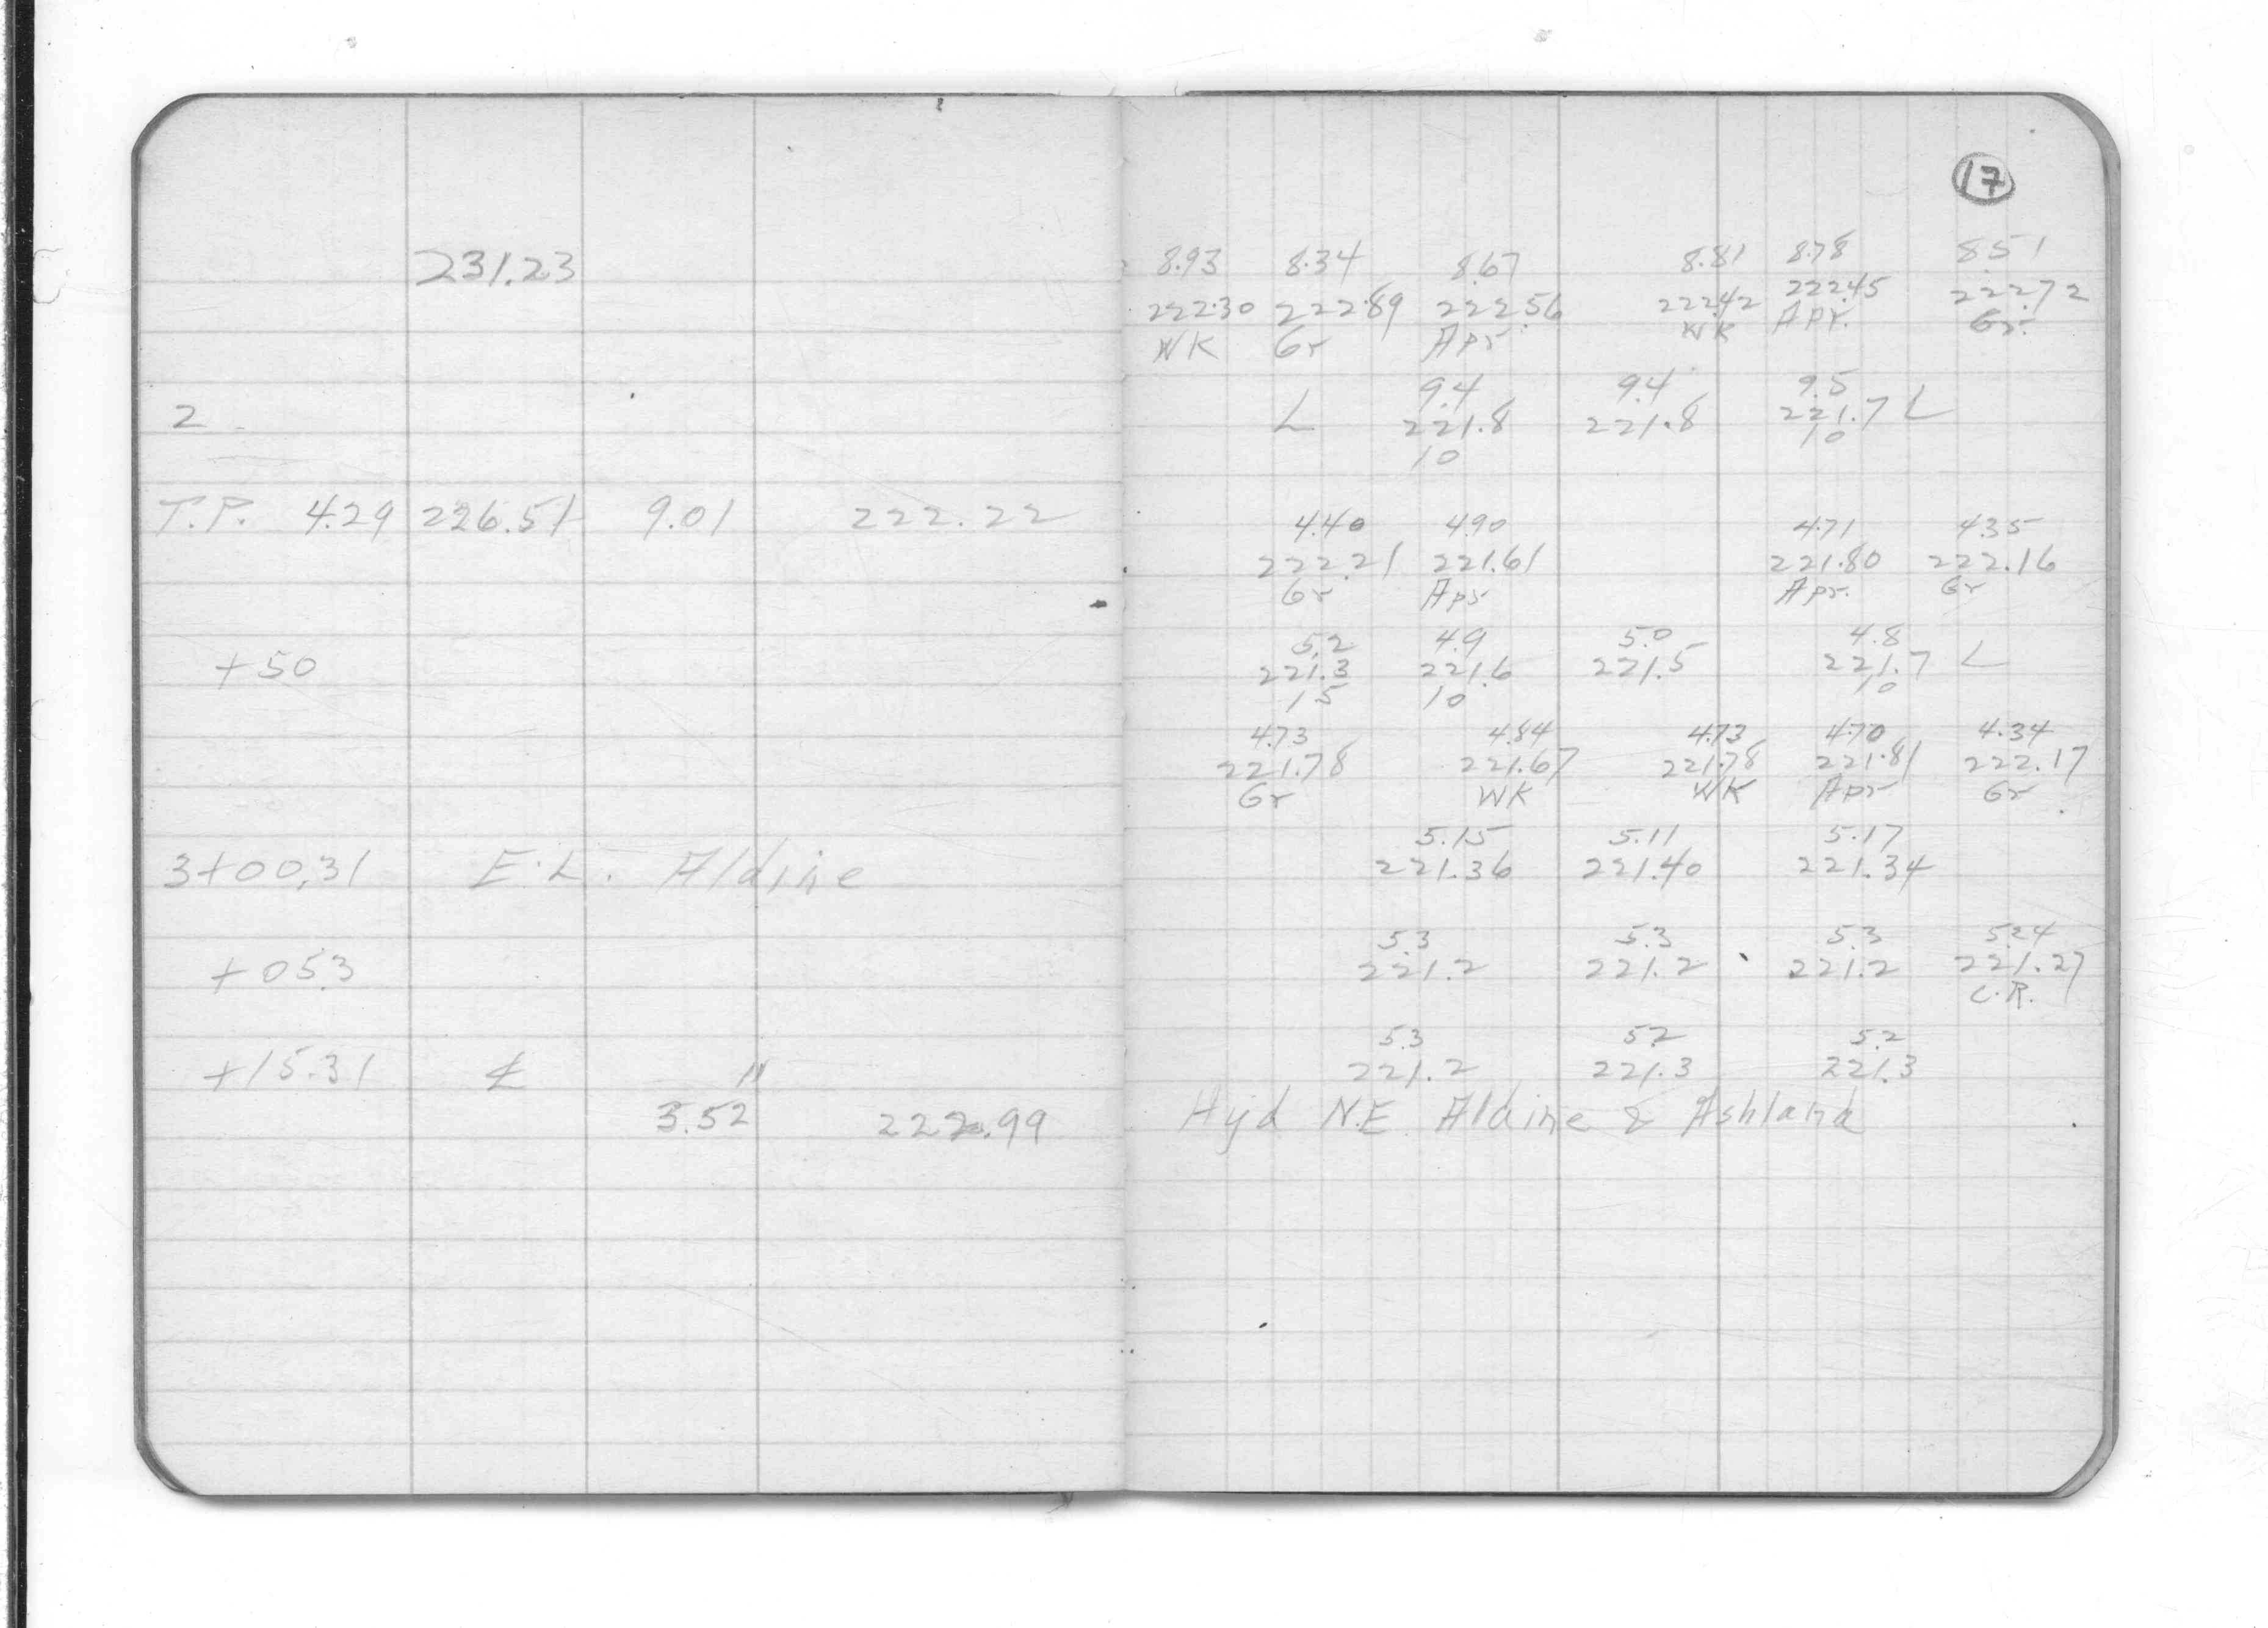 17
231.23
8.93 8.34 8.67 8.81 8.78 8.51
222.30 222.89 222.56 222.42 222.45 222.72
WK Gr Apr WK Apr. Gr.
9.4 9.4 9.5
2 L 221.8 221.8 221.7 L
10 10
T.P. 4.29 226.51 9.01 222.22
4.40 4.90 4.71 4.35
222.21 221.61 221.80 222.16
Gr Apr Apr. Gr
5.2 4.9 5.0 4.8
+50 221.3 221.6 221.5 221.7 L
15 10 10
4.73 4.84 4.73 4.70 4.34
221.78 221.67 221.78 221.81 222.17
Gr WK WK Apr Gr
5.15 5.11 5.17
3+00.31 E.L. Aldine 221.36 221.40 221.34
5.3 5.3 5.3 5.24
+05.3 221.2 221.2 221.2 221.27
C.R.
5.3 5.2 5.2
+15.31 ₵ " 221.2 221.3 221.3
3.52 222.99 Hyd N.E. Aldine & Ashland